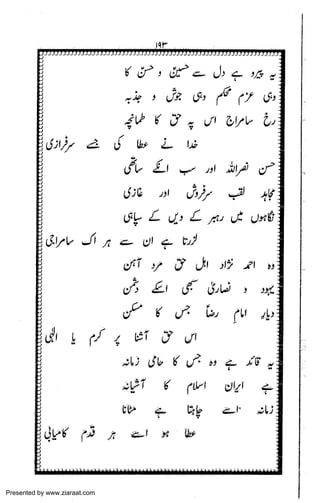 ۱۹۳
یہ پیرو ہے دل سے حسینؑ و حسنؑ کا
وہی عزم محکم وہی جوش و جذبہ
رخ سامراج اس پہ حق کا طمانچہ
خدا نے عطا کی جسے سرفرازی
حسن نصراللہ اور سب انکے ساتھی
مجاہد لقب سرفروش اور غازی
نگاہوں میں رہبر کے دیں کے سپاہی
لرزتا ہے ان سے ہر اک سامراجی
وہ احمد نژاد اہل حق مرد آہن
یہود و نصاریٰ سبھی اسکے دشمن
دیار امام رضاؑ جس کا مسکن
اس حق آشنا پر کرم یا الٰہی
یہ قائد ہے وہ جس کا حامی زمانہ
ہے ایران اسلام کا آشیانہ
زمانہ اسے چاہتا ہے مٹانا
عطا ہو اسے ہر قدم کامیابی
Presented by www.ziaraat.com